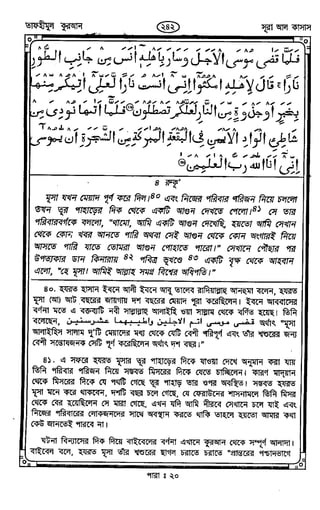 তাফহীমুল কুরআন
২৪২
সূরা আল কাসাস
فَلَمَّا قَضٰى مُوسَى الْاَجَلَ وَسَارَ بِاَهْلِهٖٓ اٰنَسَ مِنْ جَانِبِ الطُّوْرِ
نَارًا ۚ قَالَ لِاَهْلِهِ امْكُثُوْٓا اِنِّيْٓ اٰنَسْتُ نَارًا لَّعَلِّيْٓ اٰتِيْكُمْ مِّنْهَا
بِخَبَرٍ اَوْ جَذْوَةٍ مِّنَ النَّارِ لَعَلَّكُمْ تَصْطَلُوْنَ ۝ فَلَمَّآ اَتٰىهَا نُوْدِيَ مِنْ
شَاطِئِ الْوَادِ الْاَيْمَنِ فِى الْبُقْعَةِ الْمُبٰرَكَةِ مِنَ الشَّجَرَةِ اَنْ يّٰمُوْسٰٓى
اِنِّيْٓ اَنَا اللّٰهُ رَبُّ الْعٰلَمِيْنَ ۝
৪ রুকূ'
মূসা যখন মেয়াদ পূর্ণ করে দিল।৪০ এবং নিজের পরিবার পরিজন নিয়ে চললো
তখন তূর পাহাড়ের দিক থেকে একটি আগুন দেখতে পেলো।৪১ সে তার
পরিবারবর্গকে বললো, "থামো, আমি একটি আগুন দেখেছি, হয়তো আমি সেখান
থেকে কোন খবর আনতে পারি অথবা সেই আগুন থেকে কোন অংগারই নিয়ে
আসতে পারি যাতে তোমরা আগুন পোহাতে পারো।" সেখানে পৌঁছার পর
উপত্যকার ডান কিনারায়৪২ পবিত্র ভূখণ্ডে৪৩ একটি বৃক্ষ থেকে আহবান
এলো, "হে মূসা! আমিই আল্লাহ সমগ্র বিশ্বের অধিপতি।"
৪০. হযরত হাসান ইবনে আলী ইবনে আবু তালেব রাদিয়াল্লাহু আনহুমা বলেন, হযরত
মূসা (আ) আট বছরের জায়গায় দশ বছরের মেয়াদ পুরা করেছিলেন। ইবনে আব্বাসের
বর্ণনা মতে এ বক্তব্যটি নবী সাল্লাল্লাহু আলাইহি ওয়া সাল্লাম থেকে বর্ণিত হয়েছে। তিনি
বলেছেন, قضى موسى اتم الاجلين واطيبهما عشر سنين অর্থাৎ "মূসা
আলাইহিস সালাম দু'টি মেয়াদের মধ্য থেকে যেটি বেশী পরিপূর্ণ এবং তাঁর শ্বশুরের জন্য
বেশী সন্তোষজনক সেটি পূর্ণ করেছিলেন অর্থাৎ দশ বছর।"
৪১. এ সফরে হযরত মূসার তূর পাহাড়ের দিকে যাওয়া দেখে অনুমান করা যায়
তিনি পরিবার পরিজন নিয়ে সম্ভবত মিসরের দিকে যেতে চাচ্ছিলেন। কারণ মাদ্‌য়ান
থেকে মিসরের দিকে যে পথটি গেছে তূর পাহাড় তার ওপর অবস্থিত। সম্ভবত হযরত
মূসা মনে করে থাকবেন, দশটি বছর চলে গেছে, যে ফেরাউনের শাসনামলে তিনি মিসর
থেকে বের হয়েছিলেন সে মারা গেছে, এখন যদি আমি নীরবে সেখানে চলে যাই এবং
নিজের পরিবারের লোকজনদের সাথে অবস্থান করতে থাকি তাহলে হয়তো আমার কথা
কেউ জানতেই পারবে না।
ঘটনা বিন্যাসের দিক দিয়ে বাইবেলের বর্ণনা এখানে কুরআন থেকে সম্পূর্ণ আলাদা।
বাইবেল বলে, হযরত মূসা তাঁর শ্বশুরের ছাগল চরাতে চরাতে "প্রান্তরের পশ্চাদভাগে
পারা ঃ ২০